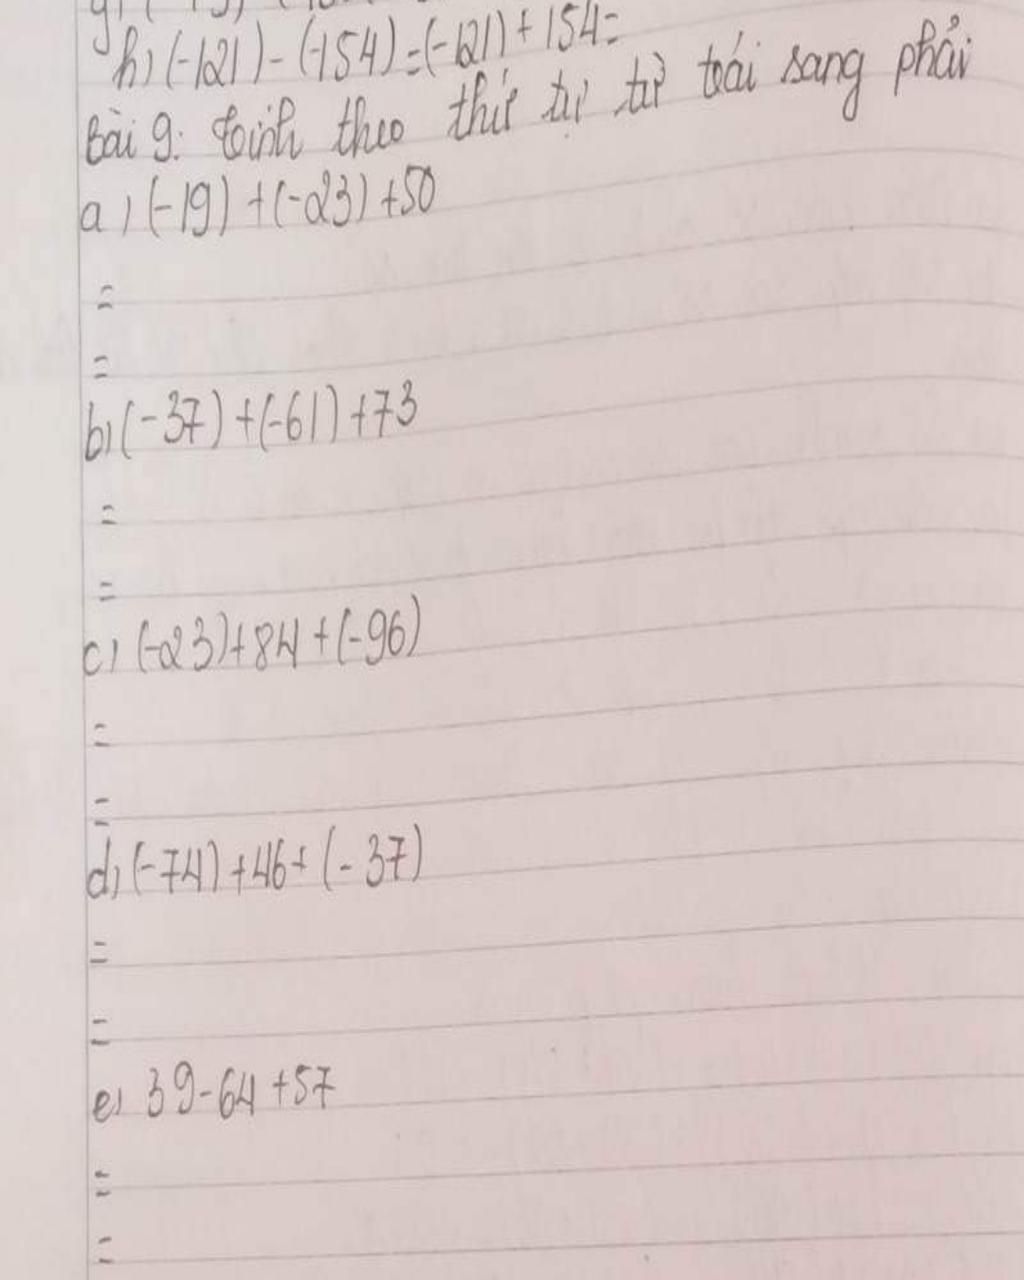 h) (-121) - (-154) = (-121) + 154 =
Bài 9: tính theo thứ tự từ trái sang phải
a) (-19) + (-23) + 50
=
=
b) (-37) + (-61) + 73
=
=
c) (-23) + 84 + (-96)
=
=
d) (-74) + 46 + (-37)
=
=
e) 39 - 64 + 57
=
=